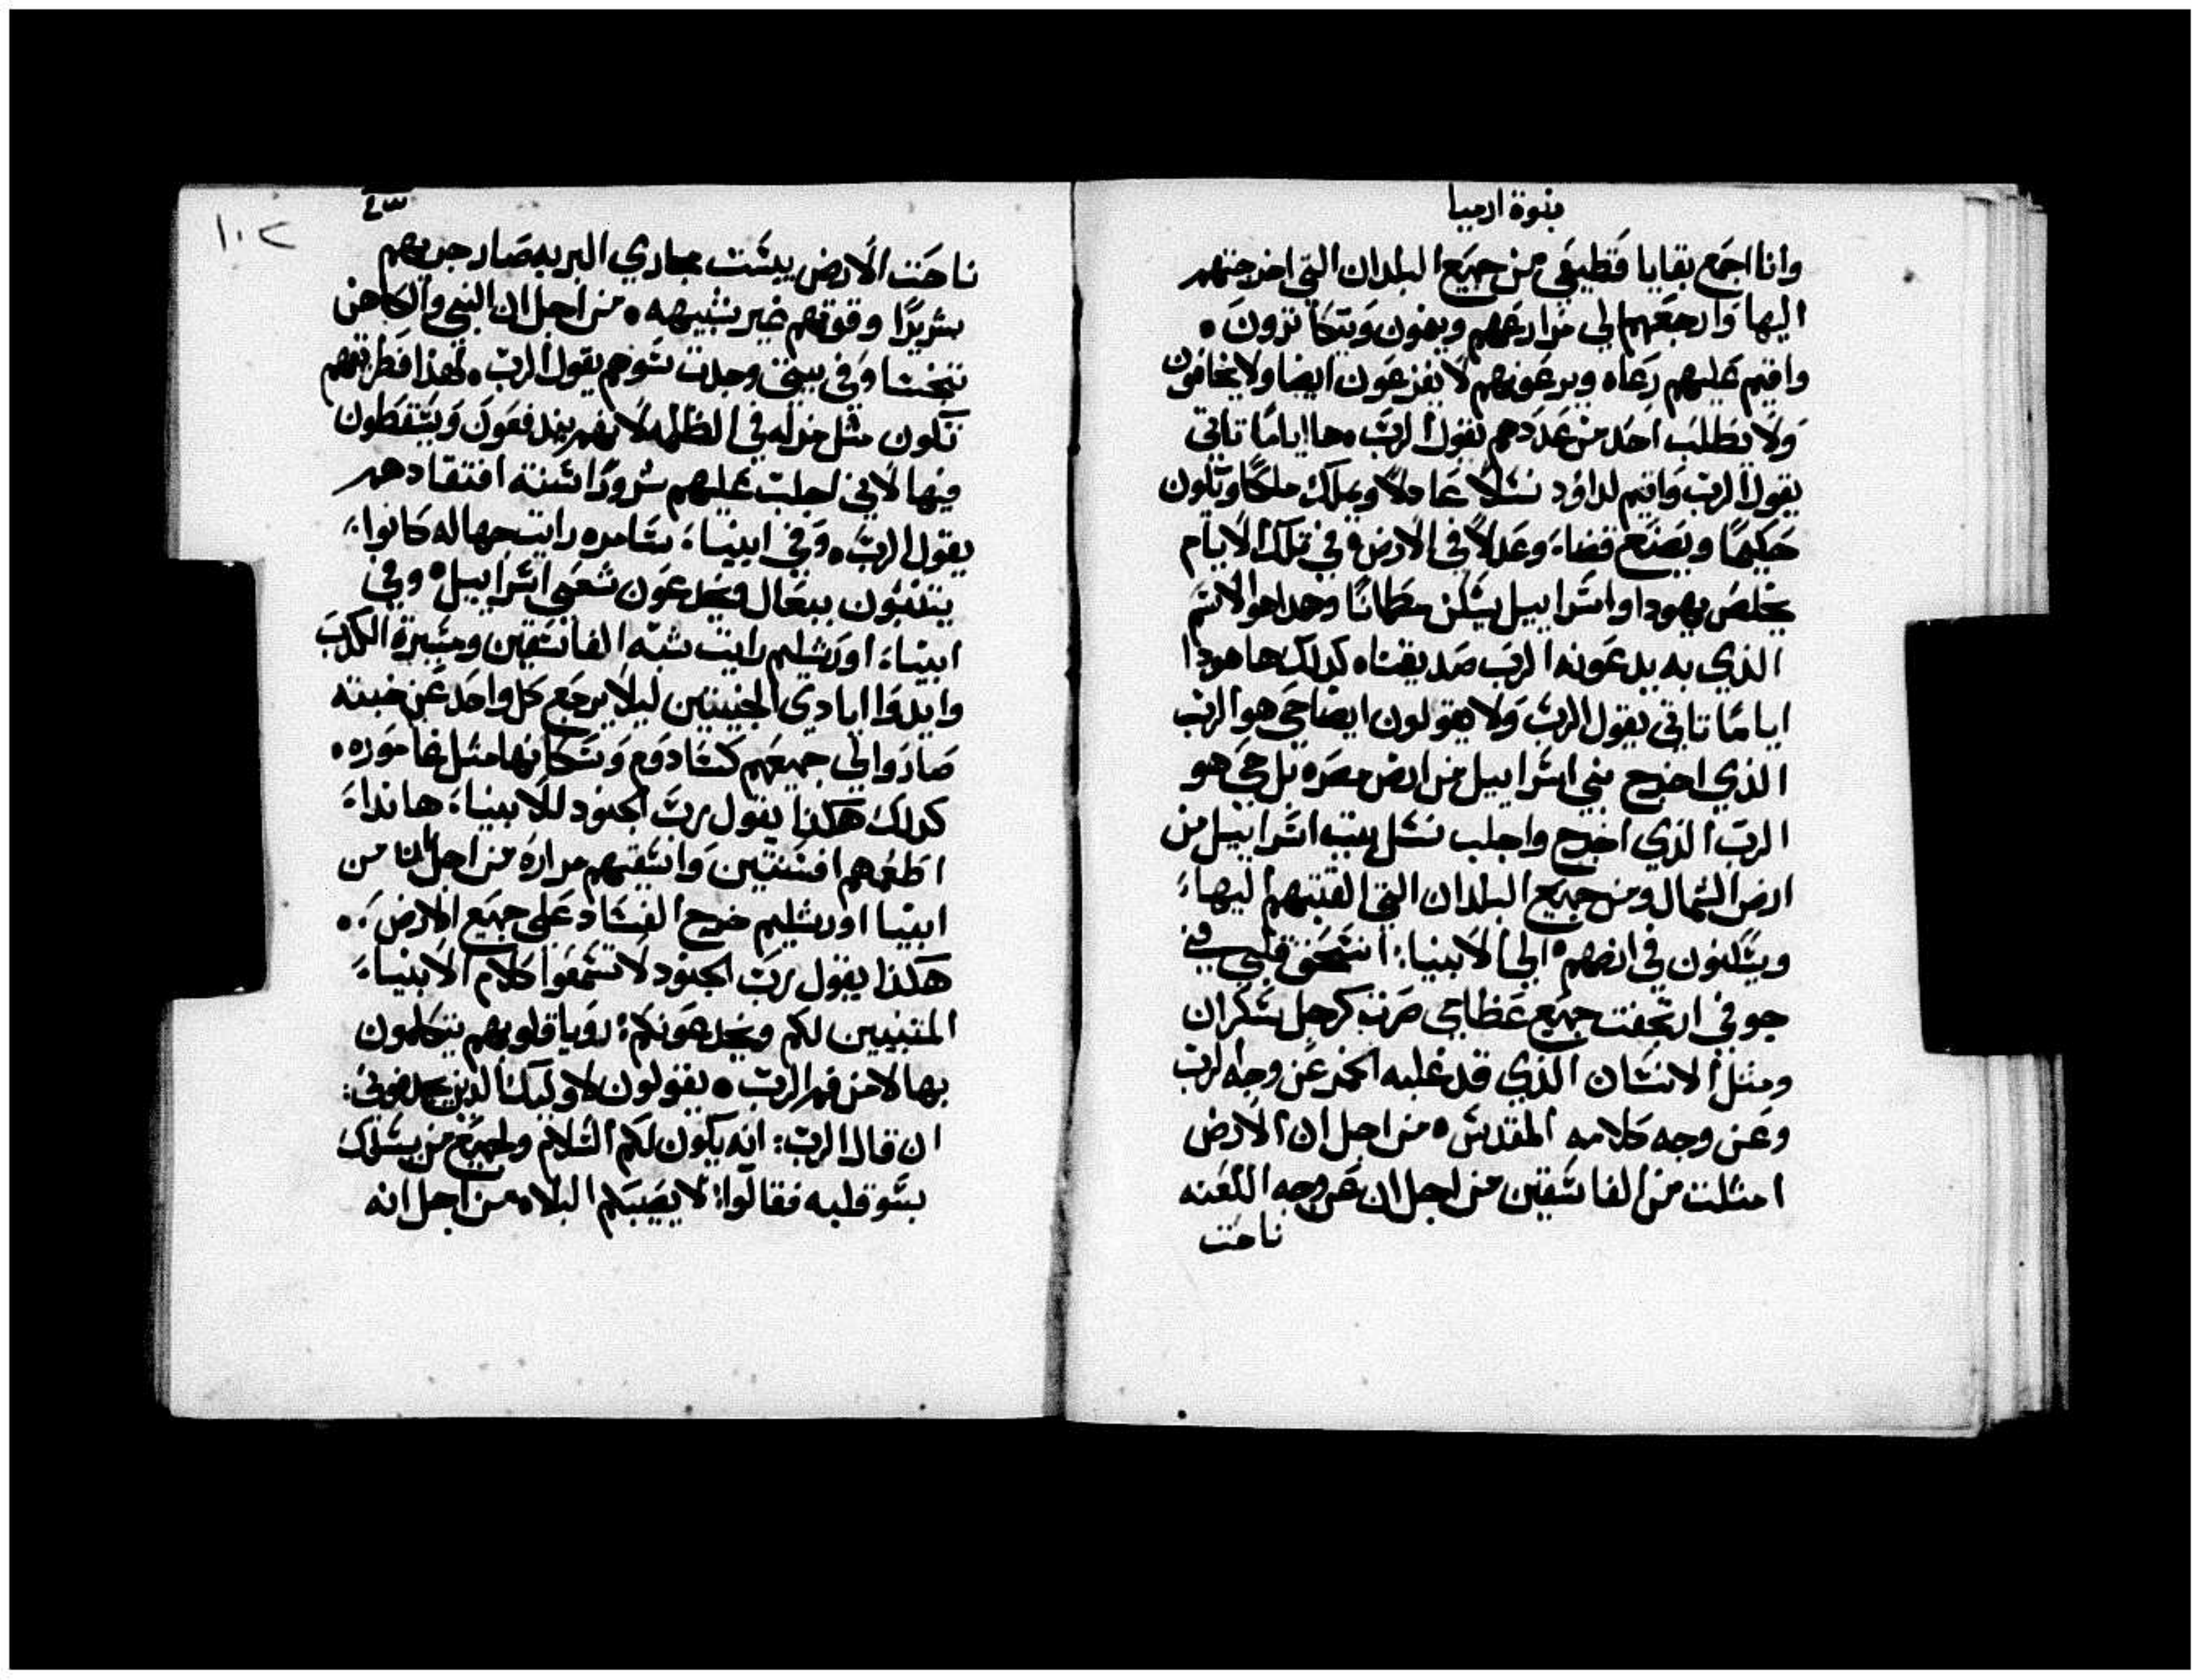 بنوة ارميا
وانا اجمع بقايا قطيعي من جميع البلدان التي اخرجتهم
اليها وارجعهم الي مزارعهم وينمون ويتكاثرون ٠
واقيم عليهم رعاه ويرعونهم لا يفزعون ايضا ولا يخافون
ولا يطلب احد من عددهم يقول الرب ٠ ها اياما تاتي
يقول الرب واقيم لداود نسلا عادلا ويملك ملكا ويكون
حكيما ويصنع قضاء وعدلا في الارض ٠ في تلك الايام
يخلص يهودا واسراييل يسكن مطمانا وهدا هو الاسم
الذي به يدعونه الرب صديقنا ٠ كدلك ها هودا
اياما تاتي يقول الرب ولا يقولون ايضا حي هو الرب
الذي اخرج بني اسراييل من ارض مصر ٠ بل حي هو
الرب الذي اخرج واجلب نسل بيت اسراييل من
ارض الشمال ومن جميع البلدان التي القيتهم اليها
ويسكنون في ارضهم ٠ الي الانبيا : انسحق قلبي في
جوفي ارتجفت جميع عظامي صرت كرجل سكران
ومثل الانسان الذي قد غلبه الخمر عن وجه الرب
وعن وجه كلامه المقدس ٠ من اجل ان الارض
امتلت من الفاسقين من اجل ان عن وجه اللعنه
ناحت
١٠٢
ناحت الارض يبست مجاري البريه صار جريهم
شريرا وقوتهم غير شبيهه ٠ من اجل ان النبي والكاهن
تنجسا وفي بيتي وجدت سوهم يقول الرب ٠ لهذا فطريقهم
تكون مثل مزله في الظلمه لانهم يندفعون ويسقطون
فيها لاني اجلب عليهم شرورا سنة افتقادهم
يقول الرب ٠ وفي انبياء سامره رايت جهاله كانوا
يتنبون ببعال ويخدعون شعبي اسراييل ٠ وفي
انبياء اورشليم رايت شبه الفاسقين ومسيرة الكدب
وايدوا ايادي الخبيثين ليلا يرجع كل واحد عن خبثه
صاروا لي جميعهم كسادوم وسكانها مثل غاموره ٠
كدلك هكذا يقول رب الجنود للانبياء هانداء
اطعمهم افسنتين واسقيهم مراره من اجل ان من
انبيا اورشليم خرج الفساد علي جميع الارض ٠
هكذا يقول رب الجنود لا تسمعوا كلام الانبياء
المتنبيين لكم ويخدعونكم : رويا قلوبهم يتكلمون
بها لا من فم الرب ٠ يقولون لاوليك الذين يجدفوني :
ان قال الرب : انه يكون لكم السلام ولجميع من يسلك
بسو قلبه فقالوا : لا يصيبكم البلاء من اجل انه